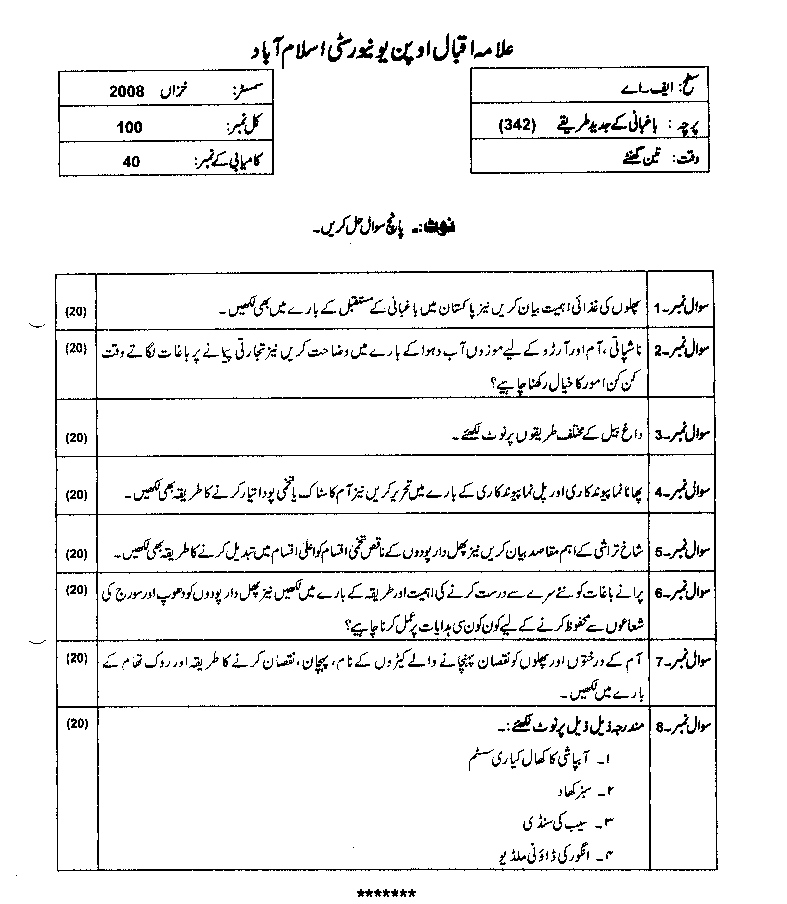 علامہ اقبال اوپن یونیورسٹی اسلام آباد
سطح: ایف۔اے
سمسٹر: خزاں 2008
پرچہ: باغبانی کے جدید طریقے (342)
کل نمبر: 100
وقت: تین گھنٹے
کامیابی کے نمبر: 40
نوٹ:۔ پانچ سوال حل کریں۔
سوال نمبر۔1 پھلوں کی غذائی اہمیت بیان کریں نیز پاکستان میں باغبانی کے مستقبل کے بارے میں بھی لکھیں۔ (20)
سوال نمبر۔2 ناشپاتی، آم اور آڑو کے لیے موزوں آب و ہوا کے بارے میں وضاحت کریں نیز تجارتی پیمانے پر باغات لگاتے وقت (20)
کن کن امور کا خیال رکھنا چاہیے؟
سوال نمبر۔3 داغ بیل کے مختلف طریقوں پر نوٹ لکھیئے۔ (20)
سوال نمبر۔4 پھانا نما پیوندکاری اور پل نما پیوندکاری کے بارے میں تحریر کریں نیز آم کا سٹاک یا تخمی پودا تیار کرنے کا طریقہ بھی لکھیں۔ (20)
سوال نمبر۔5 شاخ تراشی کے اہم مقاصد بیان کریں نیز پھل دار پودوں کے ناقص تخمی اقسام کو اعلیٰ اقسام میں تبدیل کرنے کا طریقہ بھی لکھیں۔ (20)
سوال نمبر۔6 پرانے باغات کو نئے سرے سے درست کرنے کی اہمیت اور طریقہ کے بارے میں لکھیں نیز پھل دار پودوں کو دھوپ اور سورج کی (20)
شعاعوں سے محفوظ کرنے کے لیے کون کون سی ہدایات پر عمل کرنا چاہیے؟
سوال نمبر۔7 آم کے درختوں اور پھلوں کو نقصان پہنچانے والے کیڑوں کے نام، پہچان، نقصان کرنے کا طریقہ اور روک تھام کے (20)
بارے میں لکھیں۔
سوال نمبر۔8 مندرجہ ذیل ذیل پر نوٹ لکھیئے:۔ (20)
۱۔ آبپاشی کا کھال کیاری سسٹم
۲۔ سبز کھاد
۳۔ سیب کی سنڈی
۴۔ انگور کی ڈاؤنی ملڈیو
*******